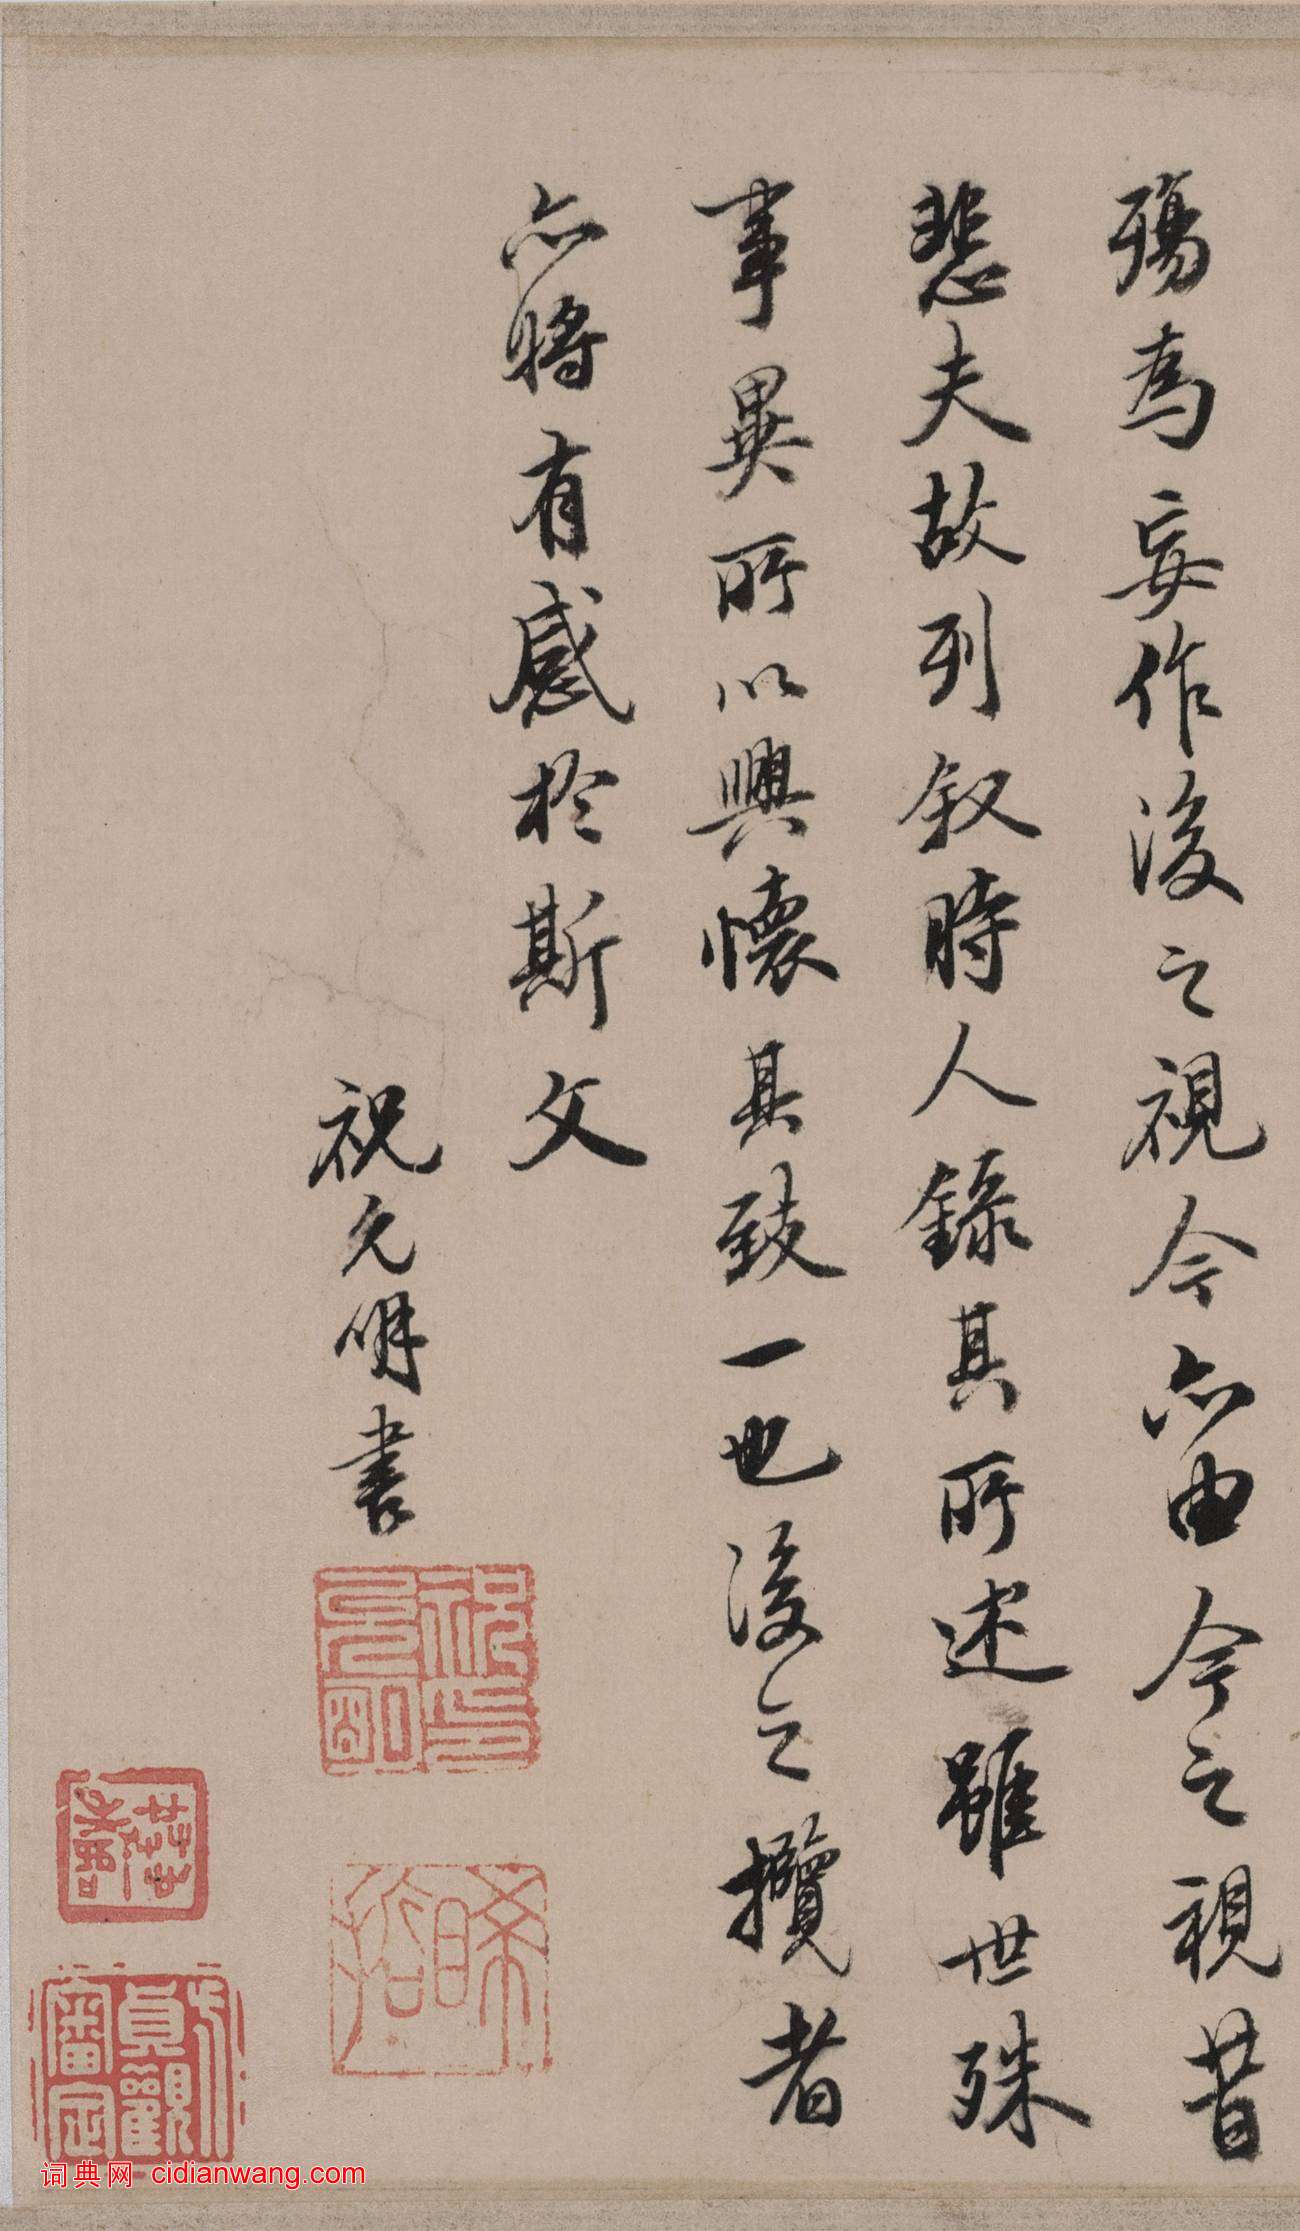 殤為妄作後之視今亦由今之視昔
悲夫故列叙時人錄其所述雖世殊
事異所以興懷其致一也後之攬者
亦將有感於斯文
祝允明書
祝允明印
希哲
真觀
審定
词典网 cidianwang.com